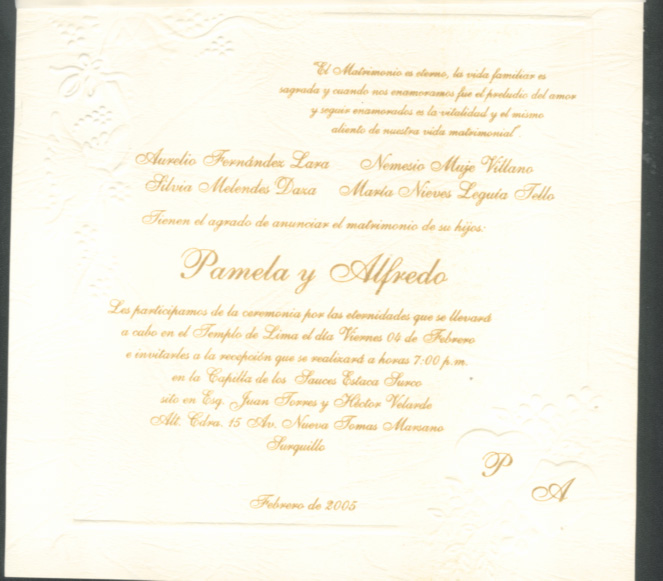 "El Matrimonio es eterno, la vida familiar es
sagrada y cuando nos enamoramos fue el preludio del amor
y seguir enamorados es la vitalidad y el mismo
aliento de nuestra vida matrimonial"
Aurelio Fernández Lara Nemesio Muje Villano
Silvia Melendes Daza María Nieves Leguía Tello
Tienen el agrado de anunciar el matrimonio de su hijos:
Pamela y Alfredo
Les participamos de la ceremonia por las eternidades que se llevará
a cabo en el Templo de Lima el día Viernes 04 de Febrero
e invitarles a la recepción que se realizará a horas 7:00 p.m.
en la Capilla de los Sauces Estaca Surco
sito en Esq. Juan Torres y Héctor Velarde
Alt. Cdra. 15 Av. Nueva Tomas Marsano
Surquillo
P
A
Febrero de 2005